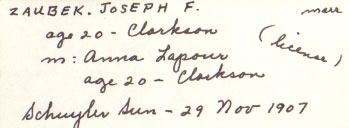 ZAUBEK. JOSEPH F. marr
age 20 - Clarkson (license)
m: Anna Lapour
age 20 - Clarkson
Schuyler Sun - 29 Nov 1907